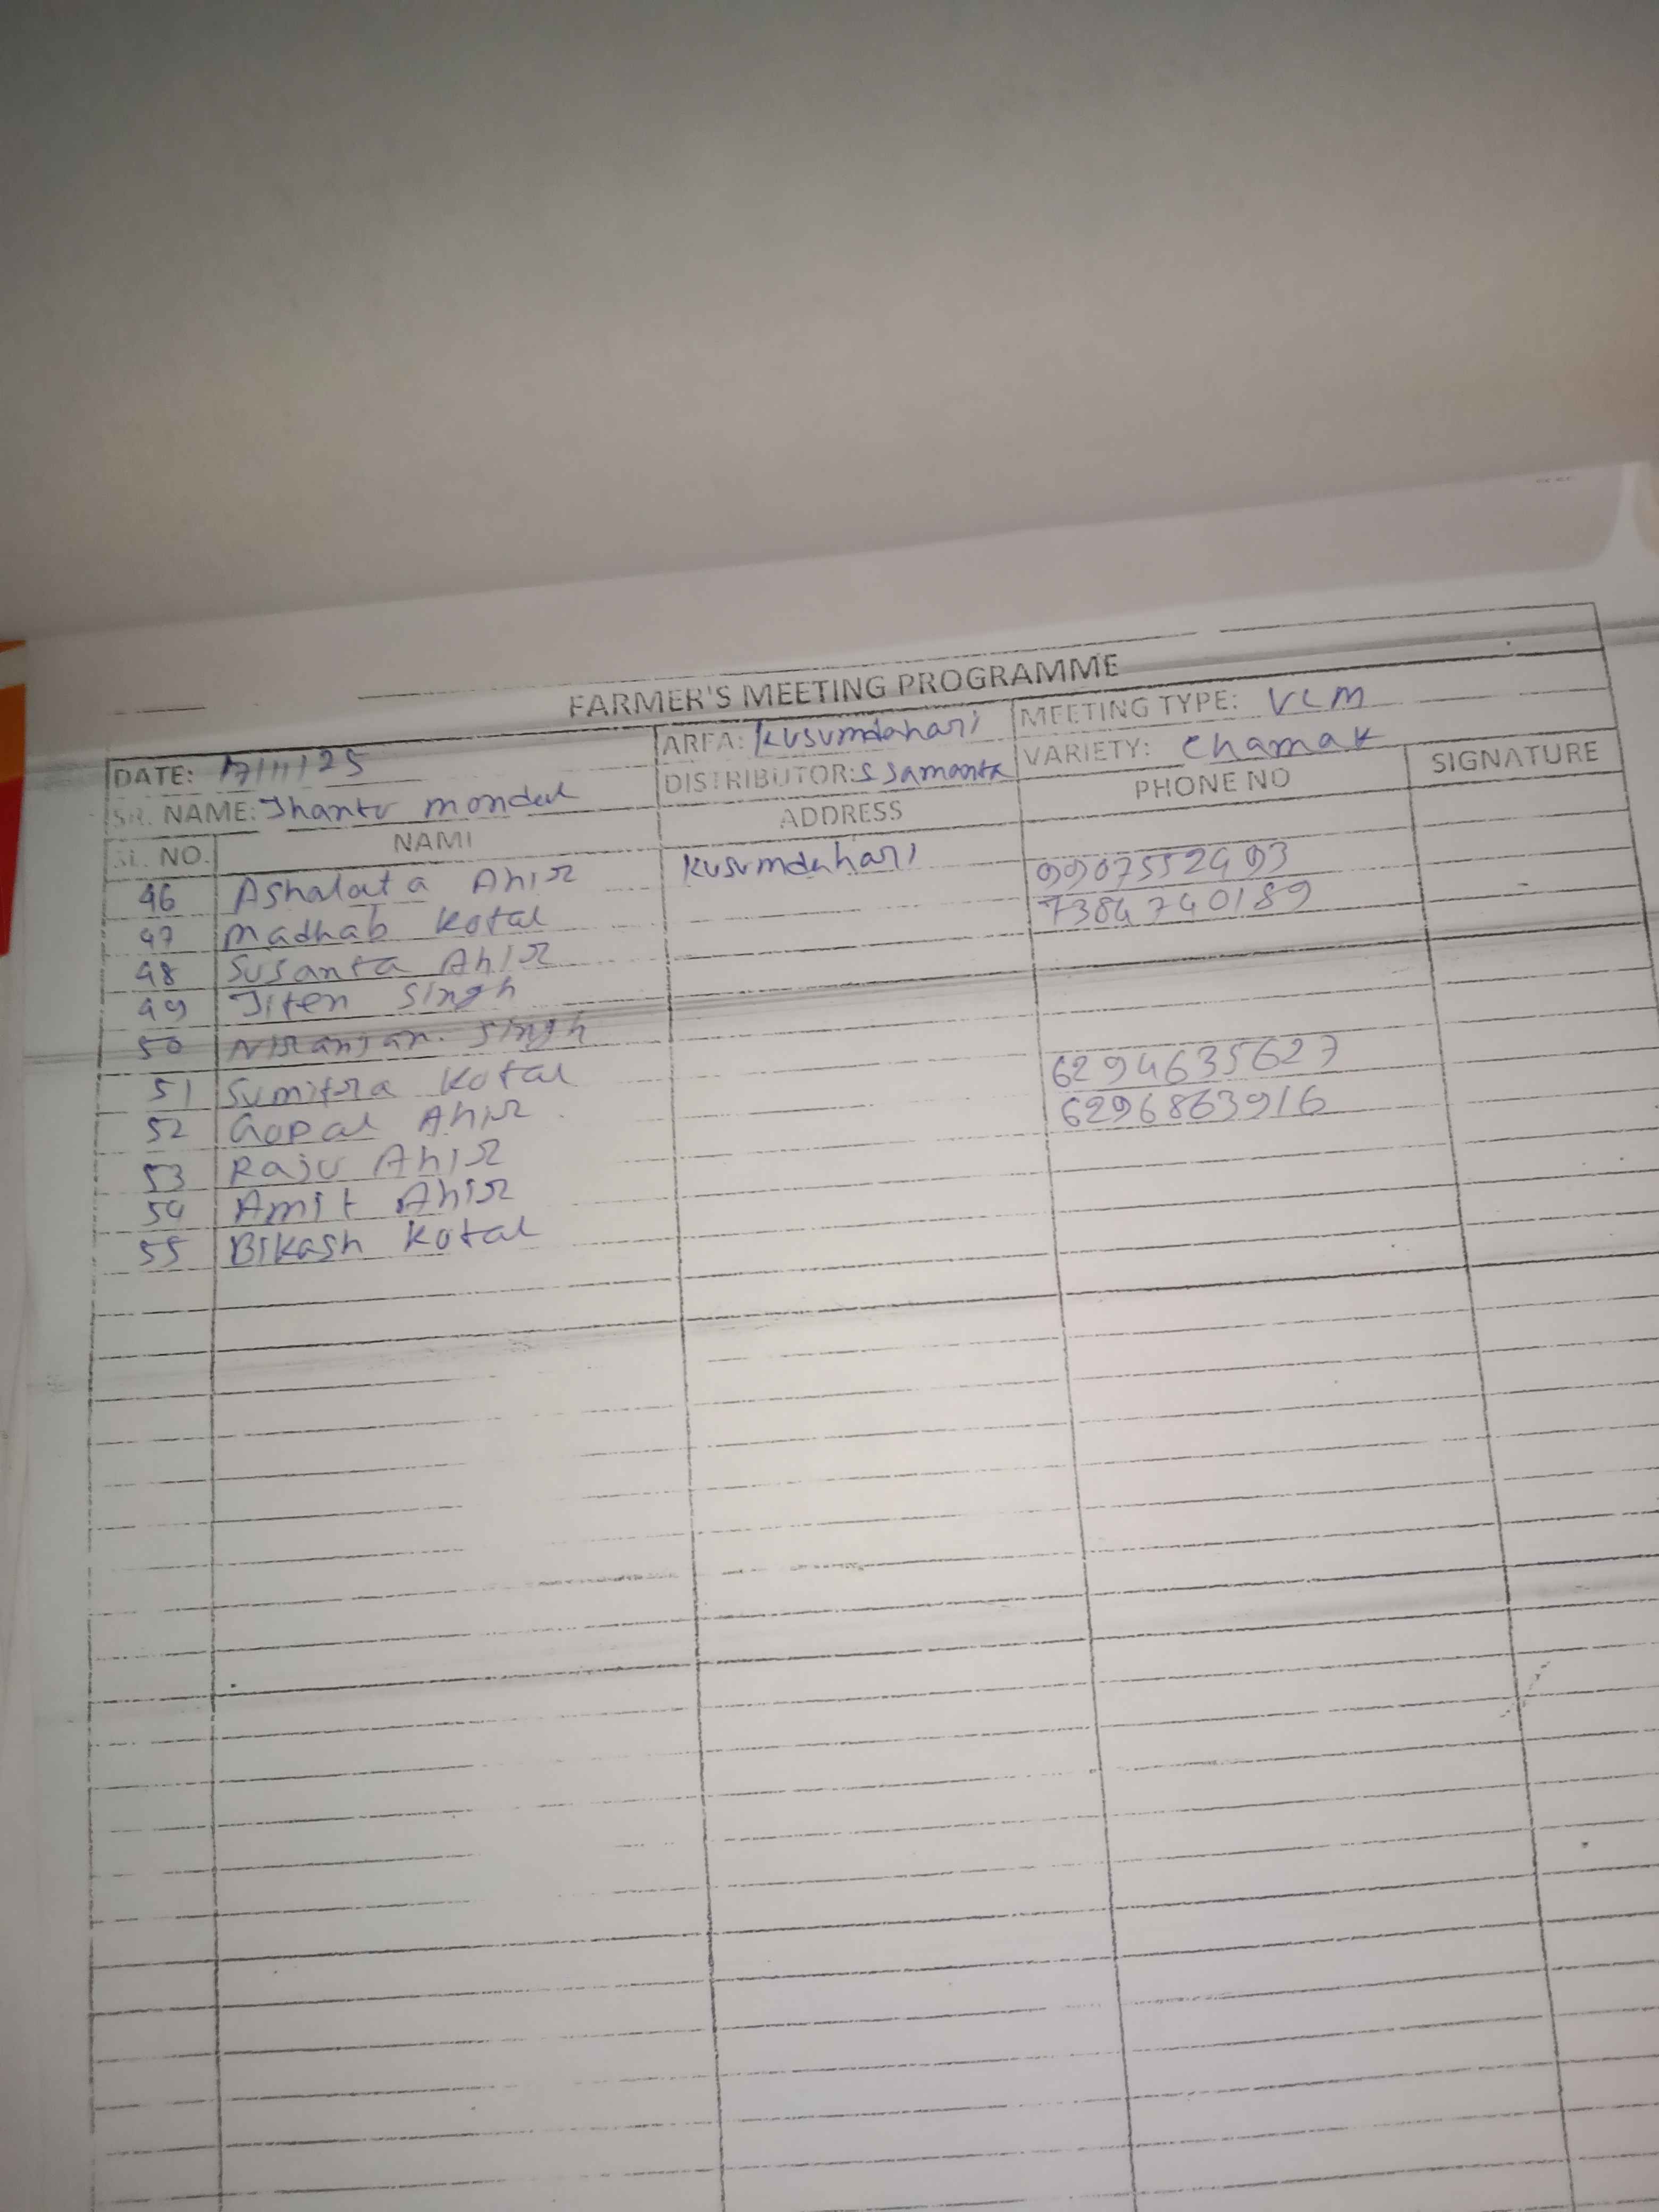 FARMER'S MEETING PROGRAMME
DATE: 17/11/25 AREA: Kusumdahari MEETING TYPE: VLM
SR. NAME: Jhantu mondal DISTRIBUTOR: S Samanta VARIETY: Chamak
SL. NO. NAME ADDRESS PHONE NO SIGNATURE
46 Ashalata Ahir Kusumdahari 9907552493
47 Madhab Kotal 7384740189
48 Susanta Ahir
49 Jiten Singh
50 Niranjan Singh
51 Sumitra Kotal 6294635627
52 Gopal Ahir 6296863916
53 Raju Ahir
54 Amit Ahir
55 Bikash Kotal